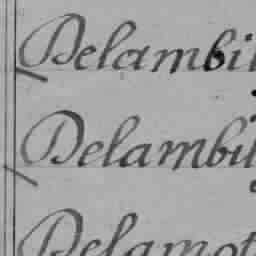 Delambi
Delambu
Delamot